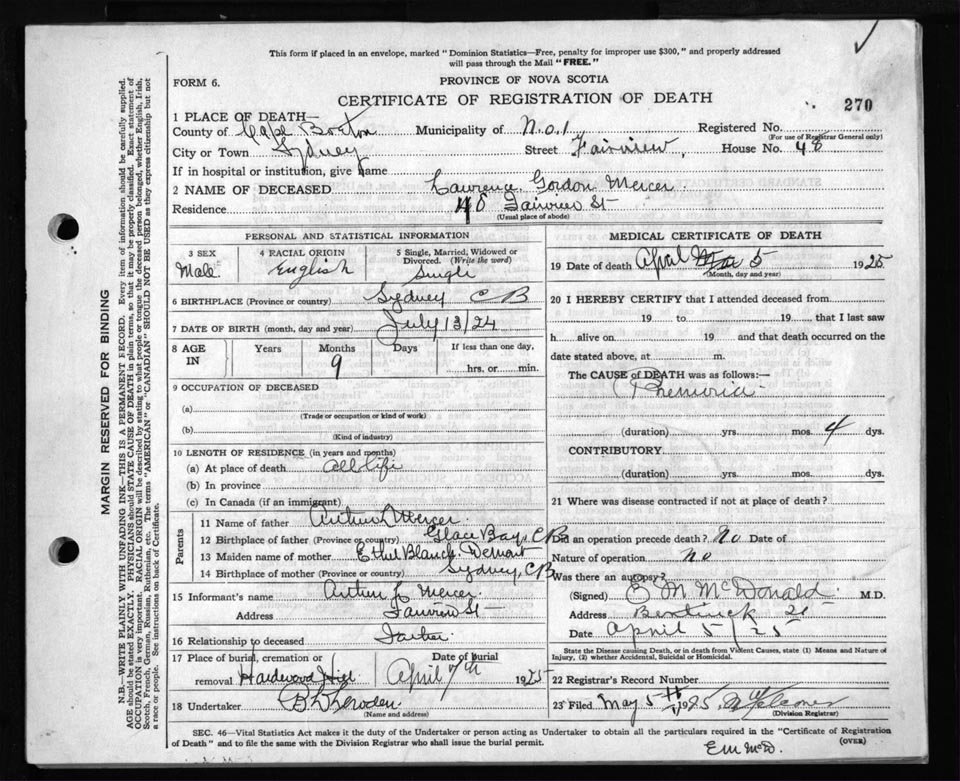 This form if placed in an envelope, marked "Dominion Statistics—Free, penalty for improper use $300," and properly addressed
will pass through the Mail "FREE."
FORM 6.
PROVINCE OF NOVA SCOTIA
CERTIFICATE OF REGISTRATION OF DEATH
270
1 PLACE OF DEATH—
County of Cape Breton Municipality of No. 1 Registered No.
(For use of Registrar General only)
City or Town Sydney Street Fairview, House No. 48
If in hospital or institution, give name
2 NAME OF DECEASED Lawrence Gordon Mercer
Residence 48 Fairview St
(Usual place of abode)
PERSONAL AND STATISTICAL INFORMATION
3 SEX Male
4 RACIAL ORIGIN English
5 Single, Married, Widowed or Divorced. (Write the word) Single
6 BIRTHPLACE (Province or country) Sydney C B
7 DATE OF BIRTH (month, day and year) July 13/24
8 AGE IN Years Months 9 Days If less than one day, hrs. or min.
9 OCCUPATION OF DECEASED
(a)
(Trade or occupation or kind of work)
(b)
(Kind of industry)
10 LENGTH OF RESIDENCE (in years and months)
(a) At place of death All life
(b) In province
(c) In Canada (if an immigrant)
Parents
11 Name of father Arthur Mercer
12 Birthplace of father (Province or country) Glace Bay, C B
13 Maiden name of mother Ethel Blanch
14 Birthplace of mother (Province or country) Sydney, C B
15 Informant's name Arthur Mercer
Address Fairview St
16 Relationship to deceased Father
17 Place of burial, cremation or removal Hardwood Hill Date of burial April 7th 1925
18 Undertaker
(Name and address)
MEDICAL CERTIFICATE OF DEATH
19 Date of death April 5 1925
(Month, day and year)
20 I HEREBY CERTIFY that I attended deceased from
19 to 19 that I last saw
h alive on 19 and that death occurred on the
date stated above, at m.
The CAUSE of DEATH was as follows:—
(duration) yrs. mos. 4 dys.
CONTRIBUTORY
(duration) yrs. mos. dys.
21 Where was disease contracted if not at place of death?
Did an operation precede death? No Date of
Nature of operation no
Was there an autopsy?
(Signed) M McDonald M.D.
Address St
Date April 5/25
State the Disease causing Death, or in death from Violent Causes, state (1) Means and Nature of
Injury, (2) whether Accidental, Suicidal or Homicidal.
22 Registrar's Record Number
23 Filed May 5th 1925
(Division Registrar)
SEC. 46—Vital Statistics Act makes it the duty of the Undertaker or person acting as Undertaker to obtain all the particulars required in the "Certificate of Registration
of Death" and to file the same with the Division Registrar who shall issue the burial permit.
(OVER)
MARGIN RESERVED FOR BINDING
N.B.—WRITE PLAINLY WITH UNFADING INK—THIS IS A PERMANENT RECORD. Every item of information should be carefully supplied.
AGE should be stated EXACTLY. PHYSICIANS should STATE CAUSE OF DEATH in plain terms, so that it may be properly classified. Exact statement of
OCCUPATION is very important. RACIAL ORIGIN will be described by stating to what people or tongue the deceased person belonged, whether English, Irish,
Scotch, French, German, Russian, Ruthenian, etc. The terms "AMERICAN" or "CANADIAN" SHOULD NOT BE USED as they express citizenship but not
a race or people. See instructions on back of Certificate.